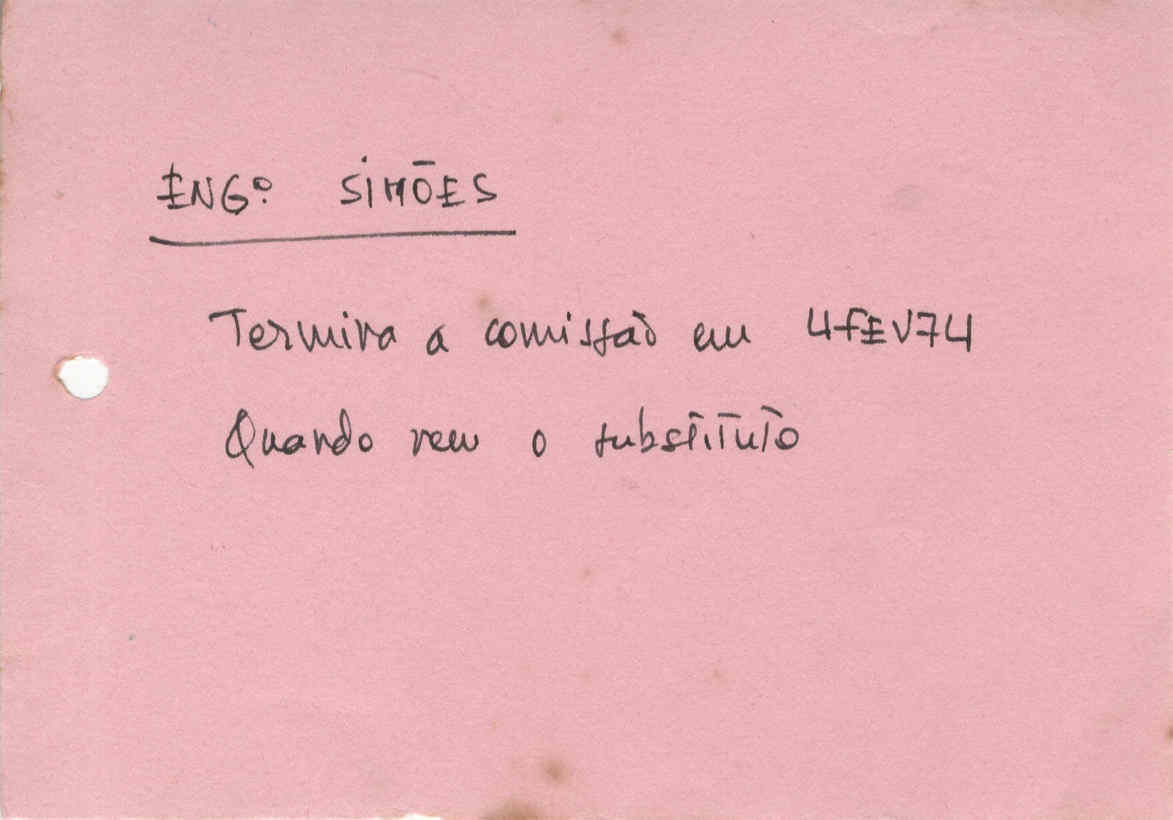 ENGº SIMÕES
Termina a comissão em 4FEV74
Quando vem o substituto